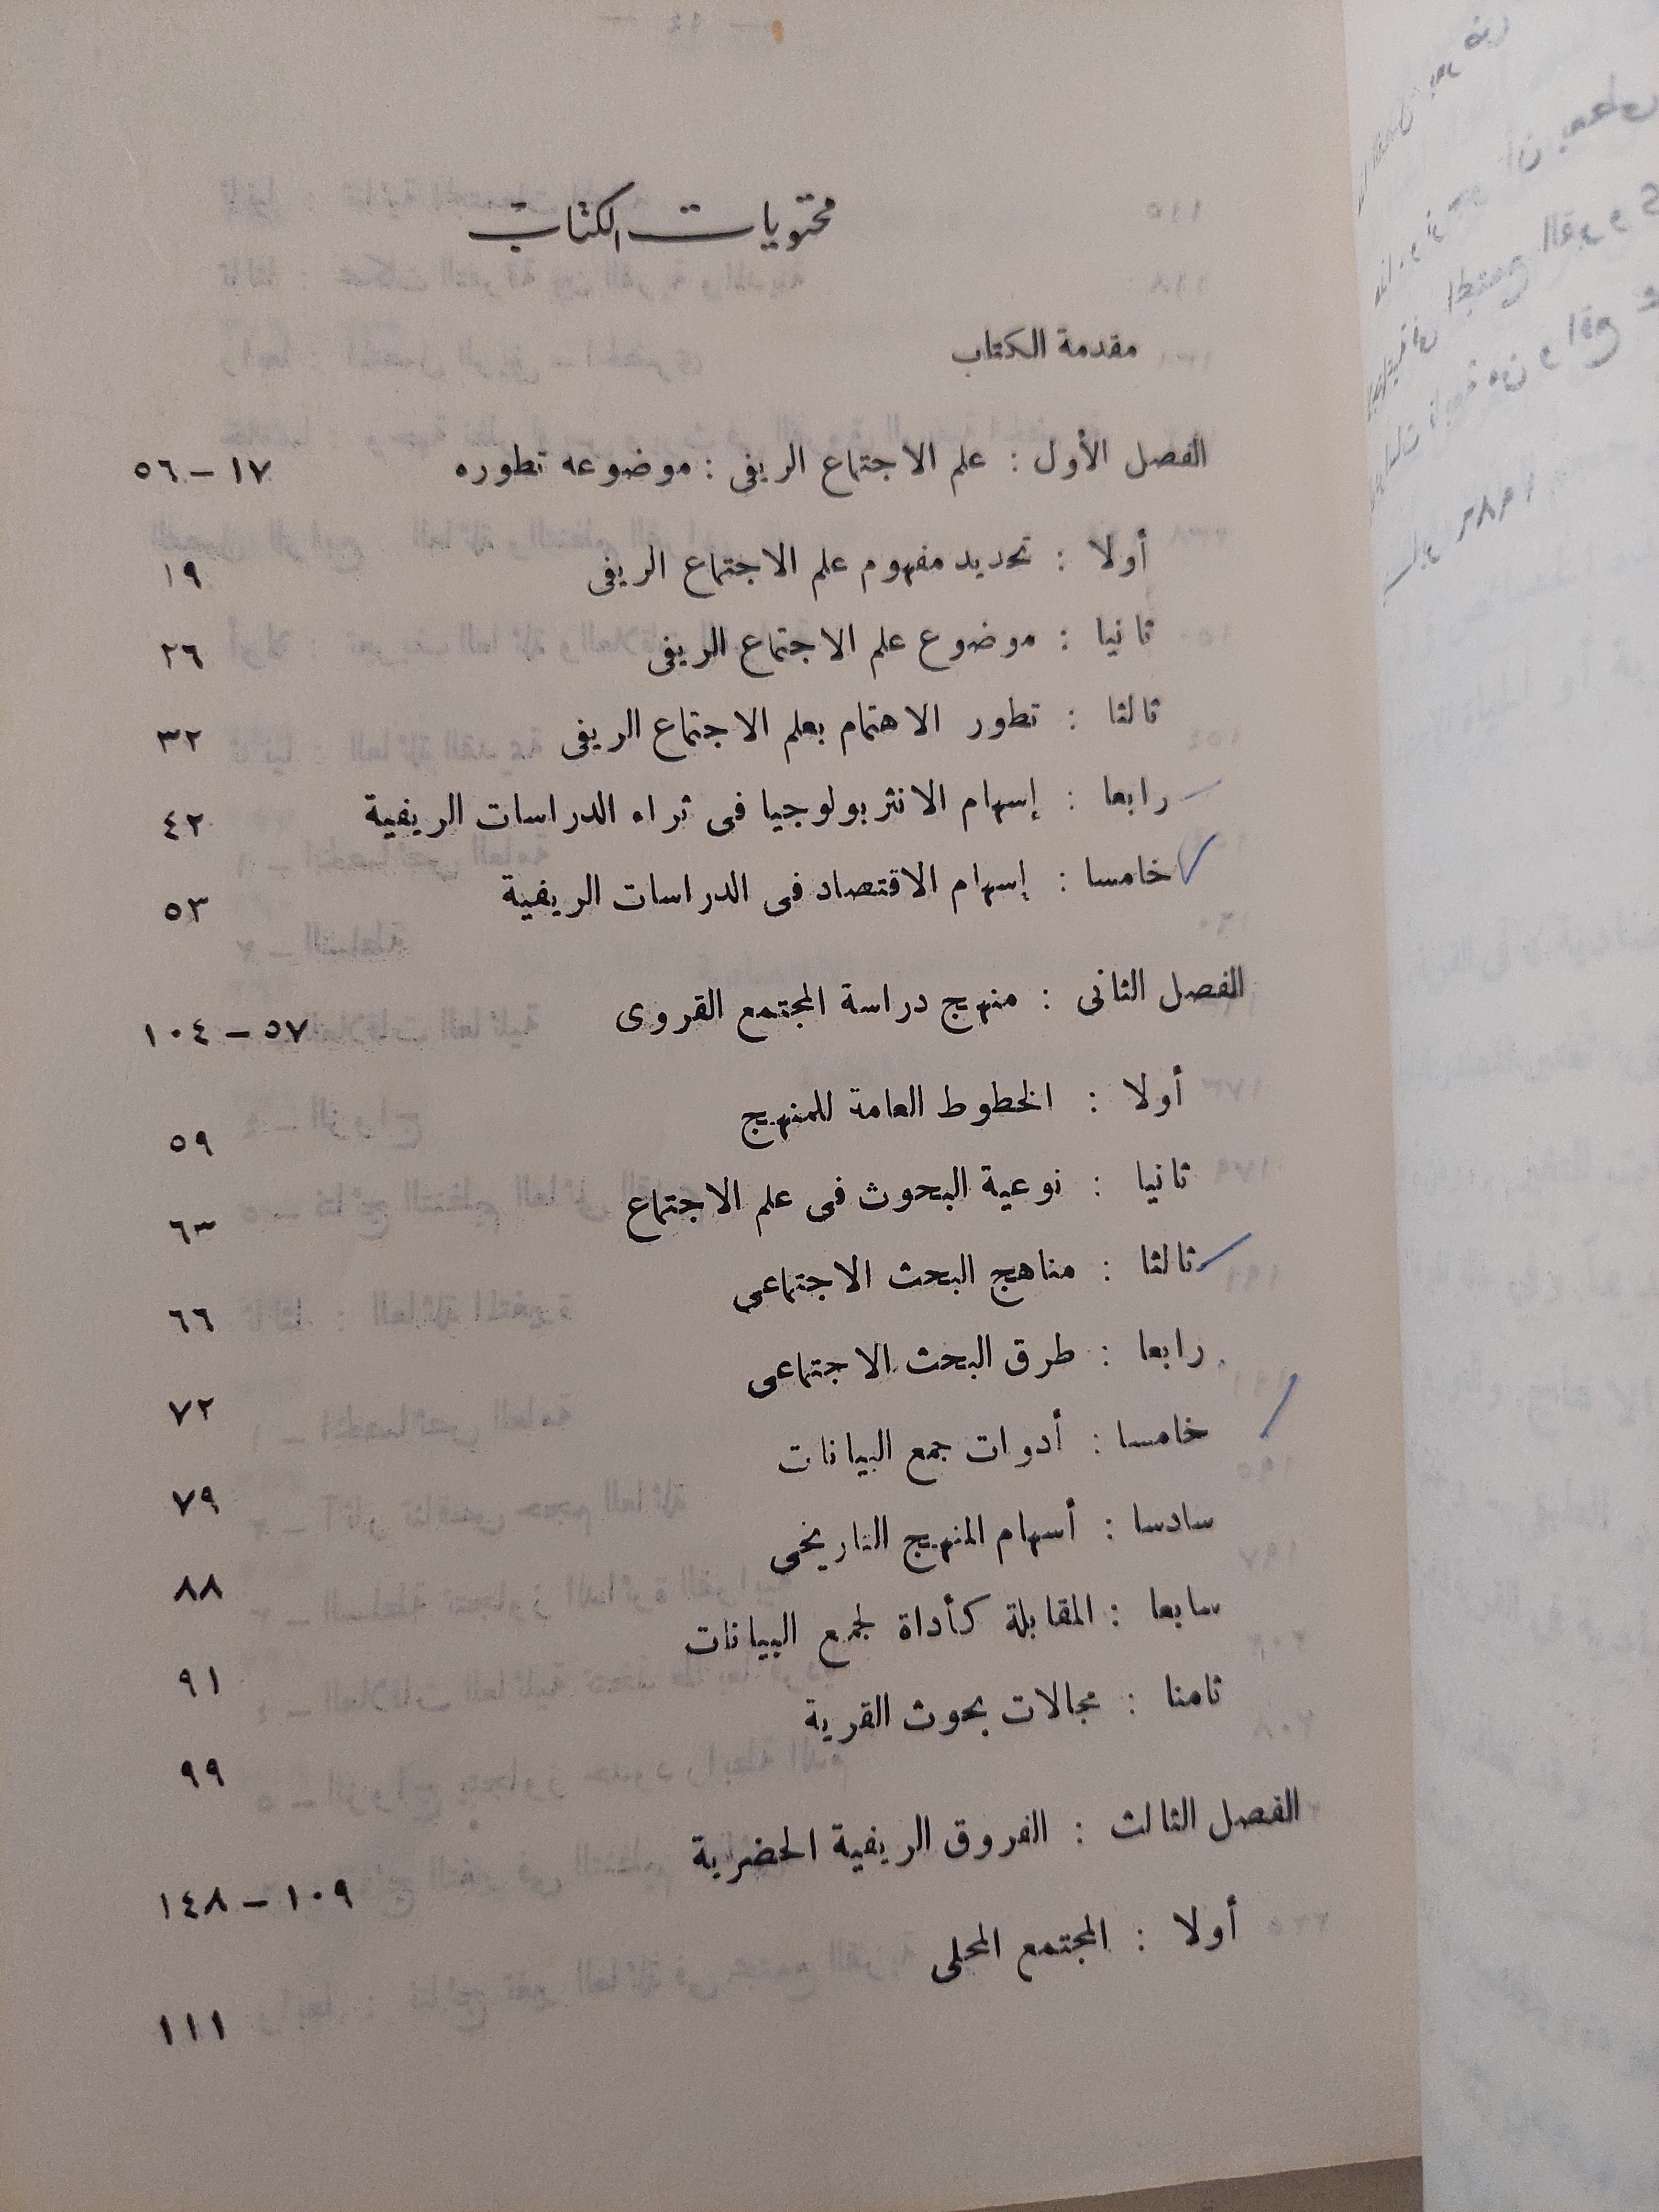 محتويات الكتاب
مقدمة الكتاب
الفصل الأول : علم الاجتماع الريفى : موضوعه تطوره ١٧ – ٥٦
أولا : تحديد مفهوم علم الاجتماع الريفى ١٩
ثانيا : موضوع علم الاجتماع الريفى ٢٦
ثالثا : تطور الاهتمام بعلم الاجتماع الريفى ٣٢
رابعا : إسهام الانثربولوجيا فى ثراء الدراسات الريفية ٤٢
خامسا : إسهام الاقتصاد فى الدراسات الريفية ٥٣
الفصل الثانى : منهج دراسة المجتمع القروى ٥٧ – ١٠٤
أولا : الخطوط العامة للمنهج ٥٩
ثانيا : نوعية البحوث فى علم الاجتماع ٦٣
ثالثا : مناهج البحث الاجتماعى ٦٦
رابعا : طرق البحث الاجتماعى ٧٢
خامسا : أدوات جمع البيانات ٧٩
سادسا : أسهام المنهج التاريخى ٨٨
سابعا : المقابلة كأداة لجمع البيانات ٩١
ثامنا : مجالات بحوث القرية ٩٩
الفصل الثالث : الفروق الريفية الحضرية ١٠٩ – ١٤٨
أولا : المجتمع المحلى ١١١